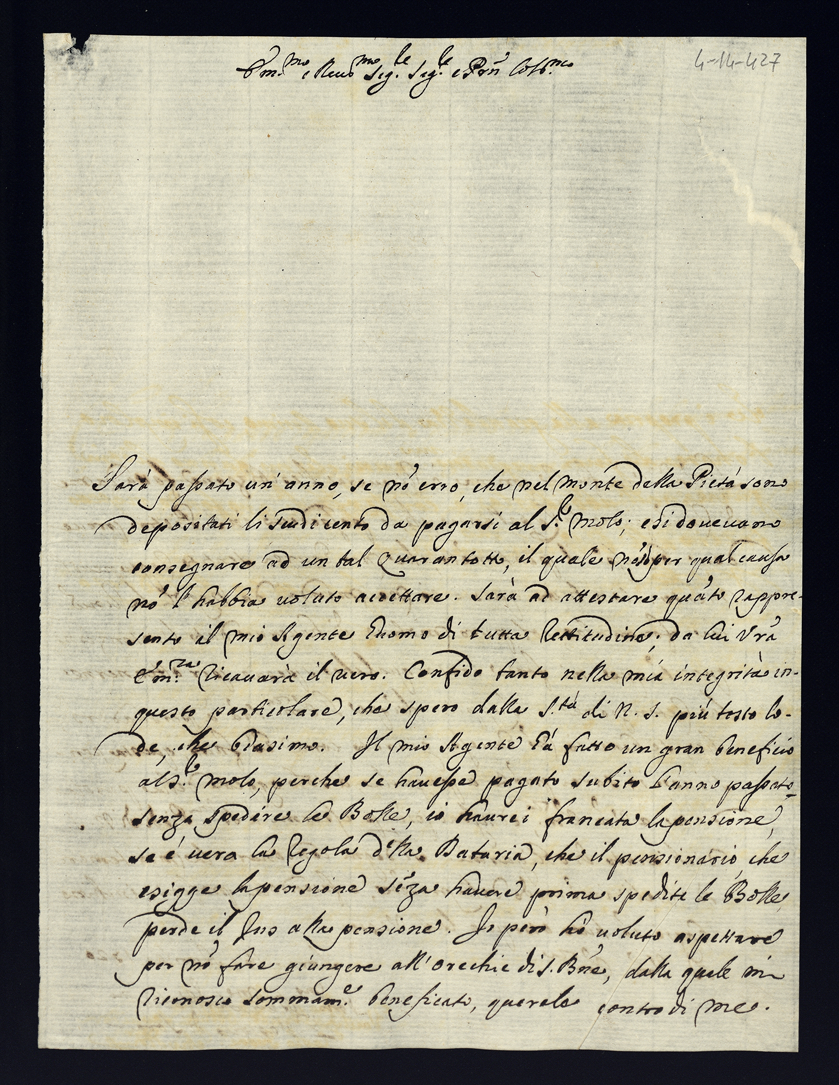 4-14-427
Em.mo e Reu.mo Sig.re Sig.re e Prñ Col.mo
Sarà passato un'anno, se nō erro, che nel monte della Pietà sono
depositati li scudi cento da pagarsi al S.re Molo; e si doueuano
consegnare ad un tal Quarantotti, il quale nō sò per qual causa
nō l'habbia uoluto accettare. Sarà ad attestare quāto rappre-
sento il mio Agente Huomo di tutta rettitudine; da lui Vrã
Em.za ricauarà il uero. Confido tanto nella mia integrità in
questo particolare, che spero dalla S.tà di N. S. più tosto lo-
de, che biasimo. Il mio Agente hà fatto un gran beneficio
al S.re Molo, perche se hauesse pagato subito l'anno passato
senza spedire le Bolle, io haurei francata la pensione,
se è uera la regola della Dataria, che il pensionario, che
esigge la pensione sēza hauere prima spedite le Bolle,
perde il Jus alla pensione. Io però hò uoluto aspettare
per nō fare giungere all'orecchie di S. Bñe, dalla quale mi
riconosco sommam.e beneficato, querele contro di me.